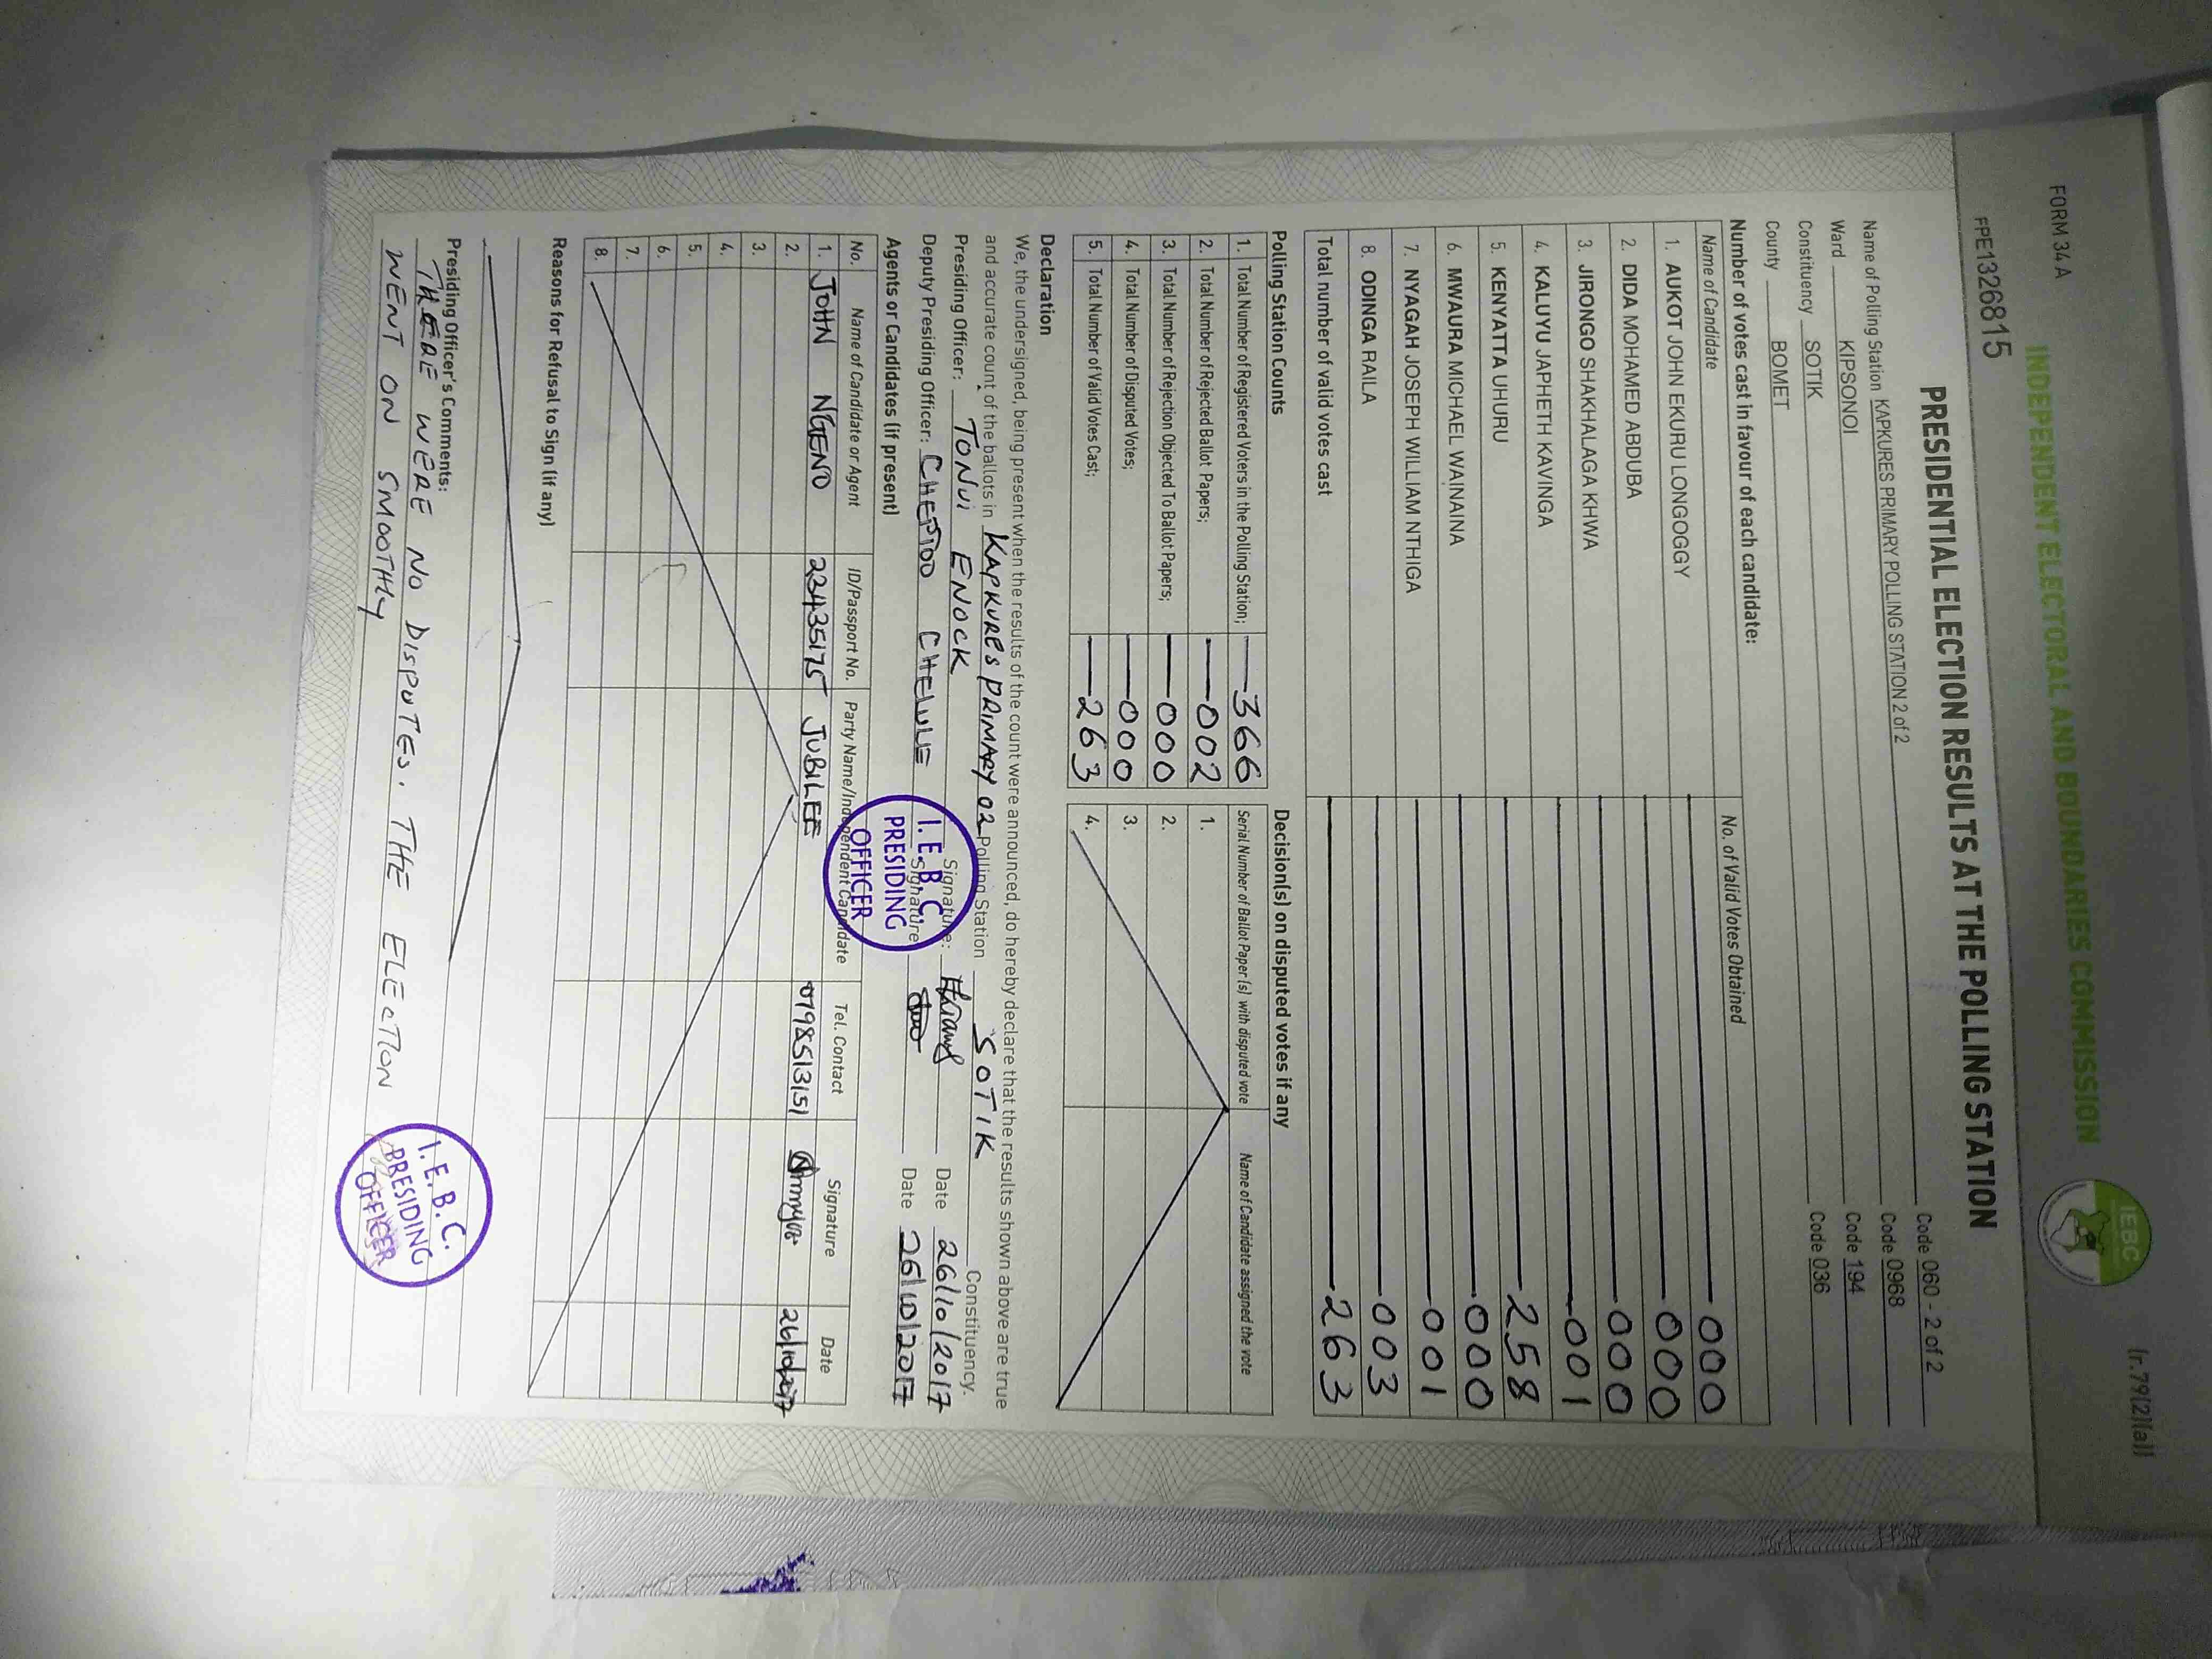 FORM 34A
(r.79(2)(a))
INDEPENDENT ELECTORAL AND BOUNDARIES COMMISSION
IEBC
PRESIDENTIAL ELECTION RESULTS AT THE POLLING STATION
Name of Polling Station KAPKURES PRIMARY POLLING STATION 2 of 2 Code 060 - 2 of 2
Ward KIPSONOI Code 0968
Constituency SOTIK Code 194
County BOMET Code 036
Number of votes cast in favour of each candidate:
Name of Candidate No. of Valid Votes Obtained
1. AUKOT JOHN EKURU LONGOGGY 000
2. DIDA MOHAMED ABDUBA 000
3. JIRONGO SHAKHALAGA KHWA 000
4. KALUYU JAPHETH KAVINGA 001
5. KENYATTA UHURU 258
6. MWAURA MICHAEL WAINAINA 000
7. NYAGAH JOSEPH WILLIAM NTHIGA 001
8. ODINGA RAILA 003
Total number of valid votes cast 263
Polling Station Counts
1. Total Number of Registered Voters in the Polling Station; 366
2. Total Number of Rejected Ballot Papers; 002
3. Total Number of Rejection Objected To Ballot Papers; 000
4. Total Number of Disputed Votes; 000
5. Total Number of Valid Votes Cast; 263
Decision(s) on disputed votes if any
Serial Number of Ballot Paper(s) with disputed vote Name of Candidate assigned the vote
1.
2.
3.
4.
Declaration
We, the undersigned, being present when the results of the count were announced, do hereby declare that the results shown above are true
and accurate count of the ballots in KAPKURES PRIMARY 02 Polling Station SOTIK Constituency.
Presiding Officer: TONUI ENOCK Signature: Date 26/10/2017
Deputy Presiding Officer: CHEPTOO Signature Date 26/10/2017
I.E.B.C.
PRESIDING
OFFICER
Agents or Candidates (if present)
No. Name of Candidate or Agent ID/Passport No. Party Name/Independent Candidate Tel. Contact Signature Date
1. JOHN NGENO 22435175 JUBILEE 0798513151 26/10/2017
2.
3.
4.
5.
6.
7.
8.
Reasons for Refusal to Sign (if any)
Presiding Officer's Comments:
THERE WERE NO DISPUTES. THE ELECTION
WENT ON SMOOTHLY
I.E.B.C.
PRESIDING
OFFICER